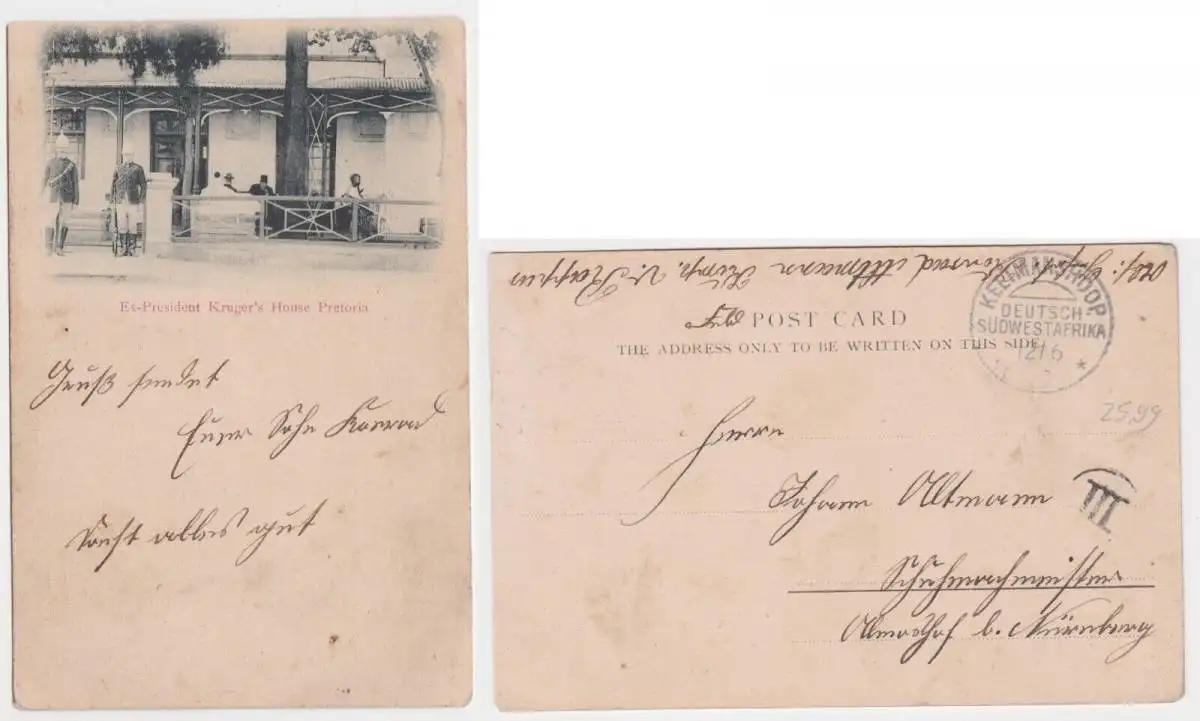 Ex-President Kruger's House Pretoria
Gruß sendet
Euer Sohn Konrad
Sonst alles gut
Konrad Altmann Komp. v. Rappus
Feld POST CARD
THE ADDRESS ONLY TO BE WRITTEN ON THIS SIDE
KEETMANSHOOP.
DEUTSCH
SÜDWESTAFRIKA
12/6
25,99
Herrn
Johann Altmann
III
Schuhmachmeister
Almoshof b. Nürnberg